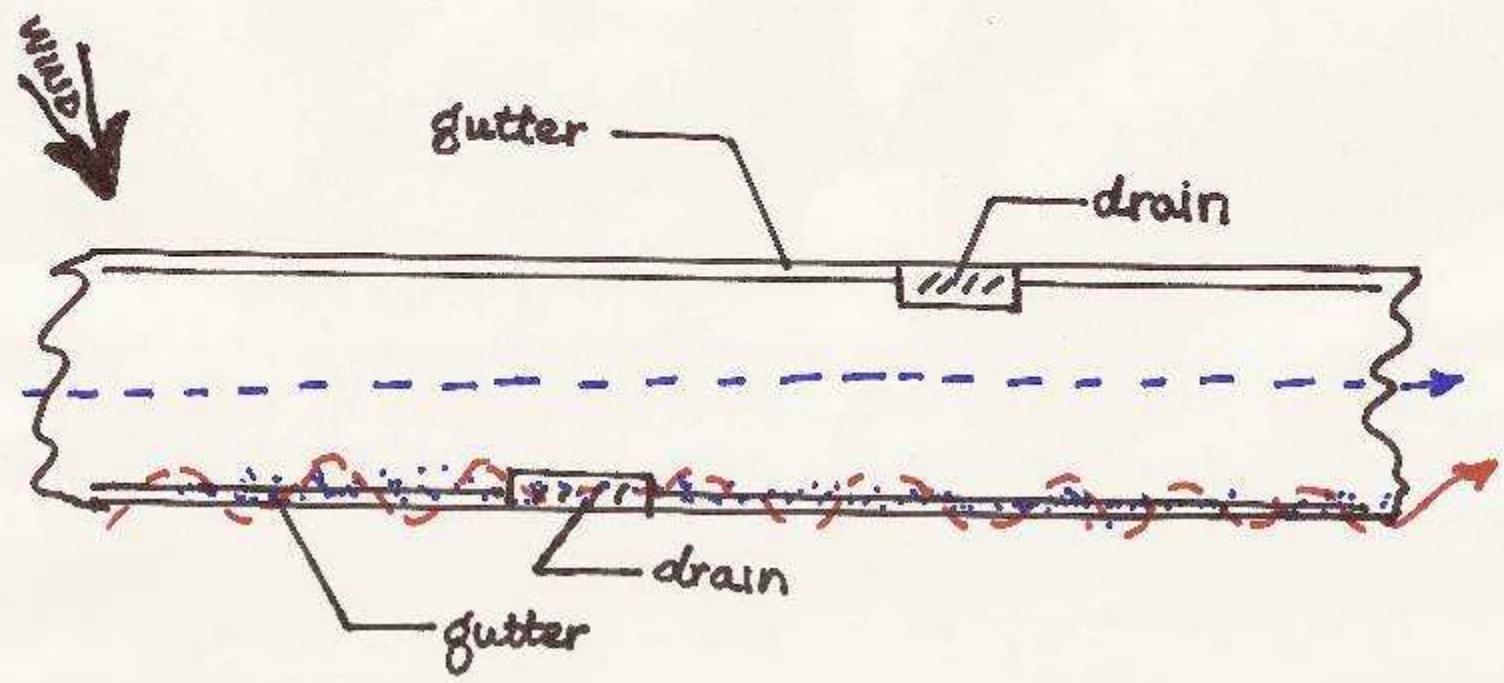 WIND
gutter
drain
drain
gutter